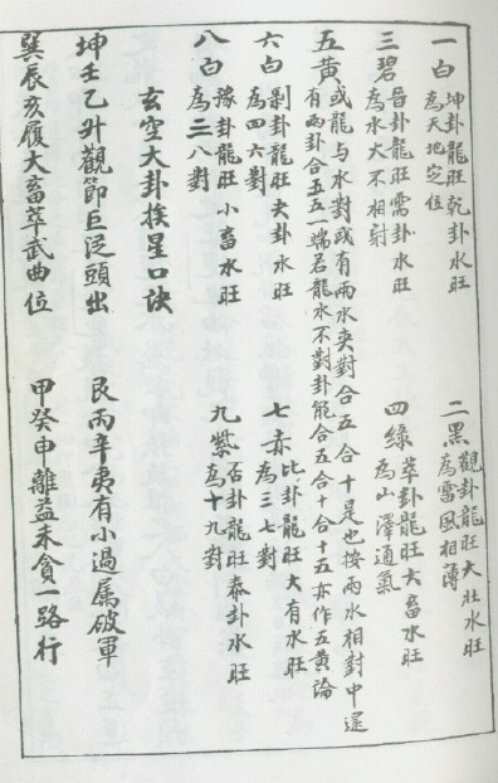 一白 坤卦龍旺乾卦水旺
為天地定位
二黑 觀卦龍旺大壯水旺
為雷風相薄
三碧 晉卦龍旺需卦水旺
為水火不相射
四綠 萃卦龍旺大畜水旺
為山澤通氣
五黃 或龍与水對或有兩水夾對合五合十是也按兩水相對中運
有兩卦合五五一端若龍水不對卦能合五合十合十五亦作五黃論
六白 剝卦龍旺夬卦水旺
為四六對
七赤 比卦龍旺大有水旺
為三七對
八白 豫卦龍旺小畜水旺
為二八對
九紫 否卦龍旺泰卦水旺
為十九對
玄空大卦挨星口訣
坤壬乙升觀節巨泛頭出
艮丙辛夷有小過属破軍
巽辰亥履大畜萃武曲位
甲癸申離益未貪一路行